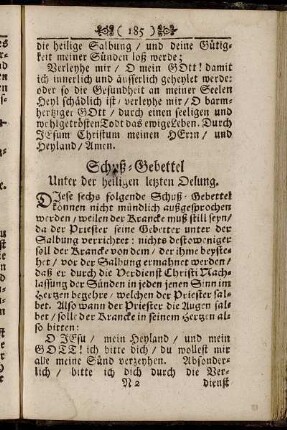 ( 185 )
die heilige Salbung / und deine Gütig-
keit meiner Sünden loß werde;
Verleyhe mir / O mein GOtt! damit
ich innerlich und äusserlich geheylet werde:
oder so die Gesundheit an meiner Seelen
Heyl schädlich ist / verleyhe mir / O barm-
hertziger GOtt / durch einen seeligen und
wohlgetrösten Todt das ewig Leben. Durch
JEsum Christum meinen HErrn / und
Heyland / Amen.
Schuß-Gebettel
Unter der heiligen letzten Oelung.
DIese sechs folgende Schuß-Gebettel
können nicht mündlich außgesprochen
werden / weilen der Krancke muß still seyn /
da der Priester seine Gebetter unter der
Salbung verrichtet: nichts destoweniger
soll der Krancke von dem / der ihme beyste-
het / vor der Salbung ermahnet werden /
daß er durch die Verdienst Christi Nach-
lassung der Sünden in jeden jenen Sinn im
Hertzen begehre / welchen der Priester sal-
bet. Also wann der Priester die Augen sal-
bet / solle der Krancke in seinem Hertzen al-
so bitten:
O JEsu / mein Heyland / und mein
GOTT! ich bitte dich / du wollest mir
alle meine Sünd verzeyhen. Absonder-
lich / bitte ich dich durch die Ver-
N 2 dienst